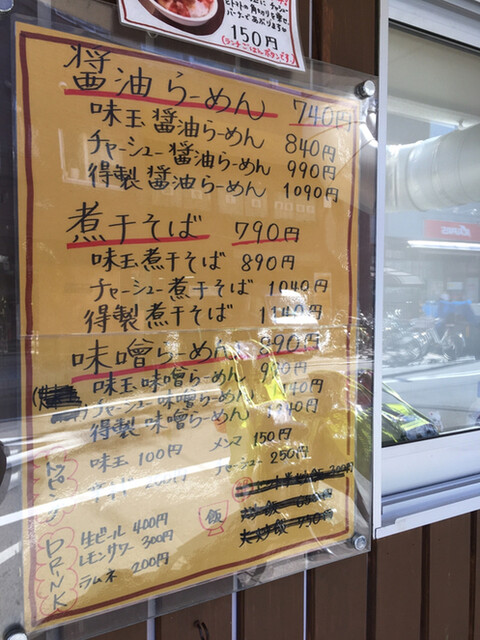 150円
(ランチごはんボタンです!)
醤油らーめん 740円
味玉 醤油らーめん 840円
チャーシュー 醤油らーめん 990円
得製 醤油らーめん 1090円
煮干そば 790円
味玉煮干そば 890円
チャーシュー煮干そば 1040円
得製煮干そば 1140円
味噌らーめん 890円
味玉 味噌らーめん
チャーシュー 味噌らーめん
得製 味噌らーめん
トッピング
味玉 100円
メンマ 150円
チャーシュー 250円
飯
DRINK
生ビール 400円
レモンサワー 300円
ラムネ 200円